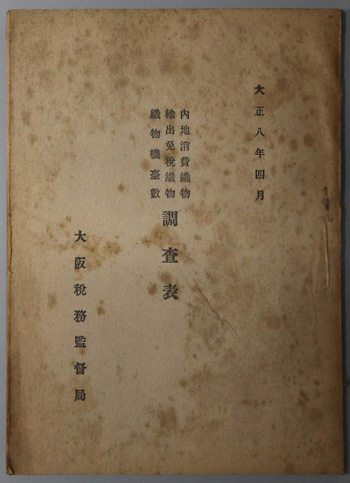 大正八年四月
內地消費織物
輸出免稅織物
織物機臺數
調查表
大阪稅務監督局